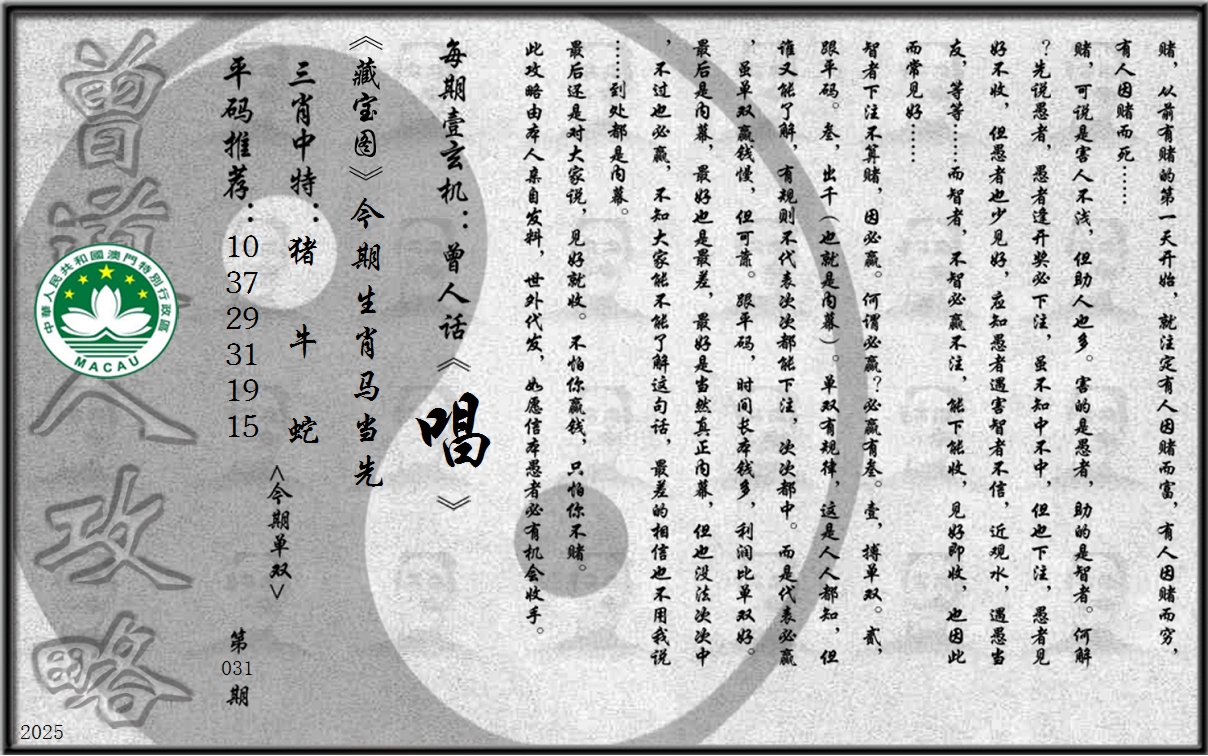 赌，从前有赌的第一天开始，就注定有人因赌而富，有人因赌而穷，
有人因赌而死……
赌，可说是害人不浅，但助人也多。害的是愚者，助的是智者。何解
？先说愚者，愚者逢开奖必下注，虽不知中不中，但也下注，愚者见
好不收，但愚者也少见好，应知愚者遇害智者不信，近观水，遇愚当
友，等等……而智者，不智必赢不注，能下能收，见好即收，也因此
而常见好……
智者下注不算赌，因必赢。何谓必赢？必赢有叁。壹，搏单双。贰，
跟平码。叁，出千（也就是内幕）。单双有规律，这是人人都知，但
谁又能了解，有规则不代表次次都能下注，次次都中。而是代表必赢
，虽单双赢钱慢，但可靠。跟平码，时间长本钱多，利润比单双好。
最后是内幕，最好也是最差，最好是当然真正内幕，但也没法次次中
，不过也必赢，不知大家能不能了解这句话，最差的相信也不用我说
……到处都是内幕。
最后还是对大家说，见好就收。不怕你赢钱，只怕你不赌。
此攻略由本人亲自发料，世外代发，如愿信本愚者必有机会收手。
每期壹玄机：曾人话《唱》
《藏宝图》今期生肖马当先
三肖中特：猪 牛 蛇
<今期单双>
平码推荐：10 37 29 31 19 15
第031期
曾道人攻略
中華人民共和國澳門特別行政區
MACAU
2025